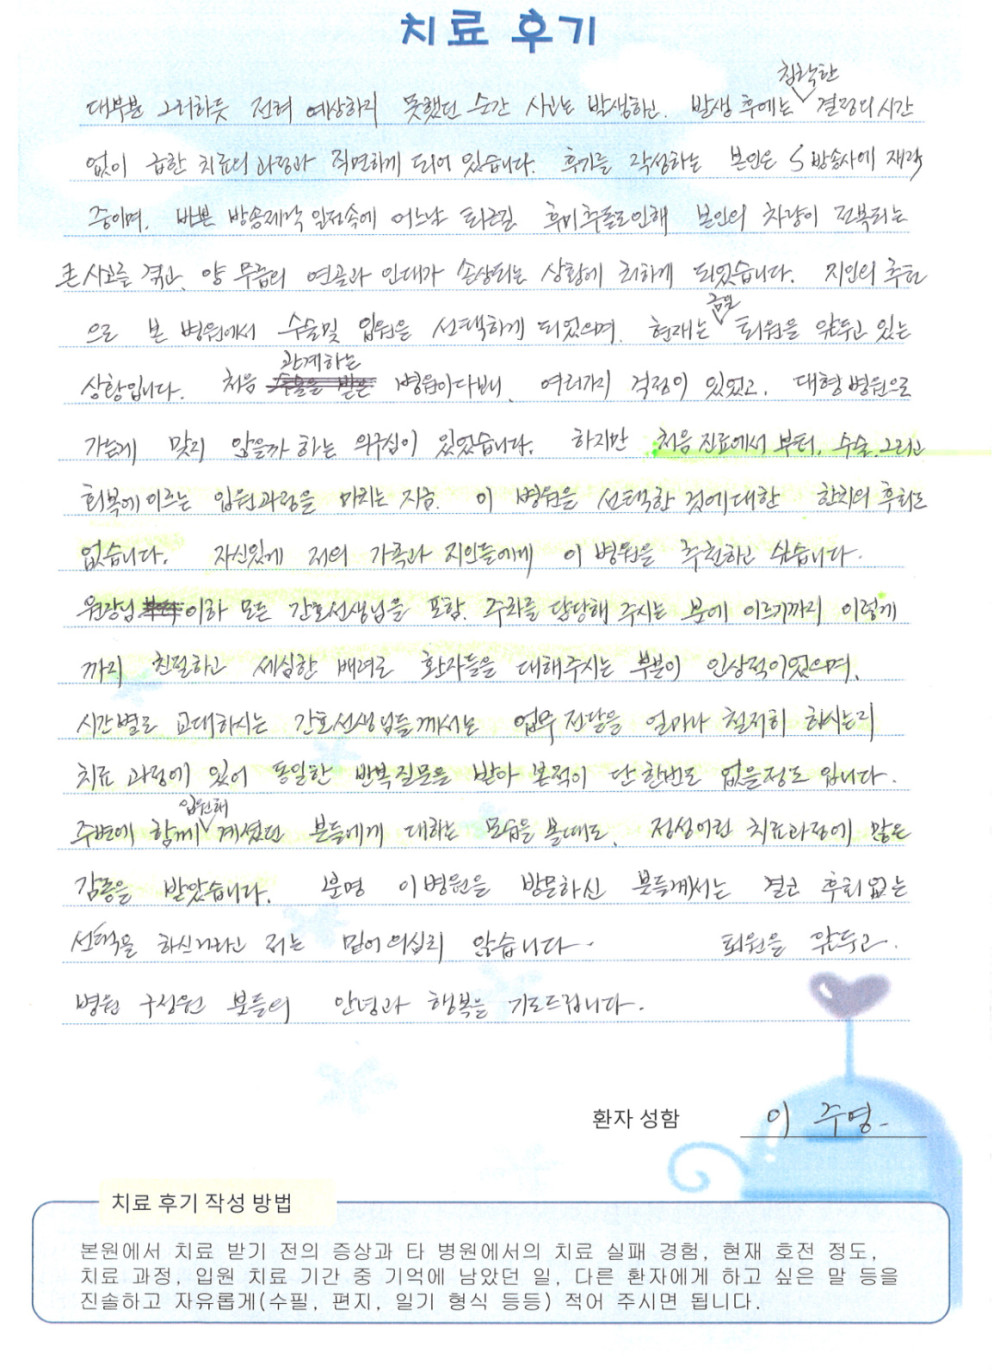 치료 후기
대부분 그러하듯 전혀 예상하지 못했던 순간 사고는 발생하고, 발생 후에는 침착한 결정의 시간
없이 급한 치료의 과정과 직면하게 되어 있습니다. 후기를 작성하는 본인은 S 방송사에 재직
중이며, 바쁜 방송제작 일정속에 어느날 퇴근길 후미추돌로인해 본인의 차량이 전복되는
큰 사고를 겪고, 양 무릎의 연골과 인대가 손상되는 상황에 처하게 되었습니다. 지인의 추천
으로 본 병원에서 수술및 입원을 선택하게 되었으며, 현재는 퇴원을 앞두고 있는
상황입니다. 처음 관계하는 병원이다보니, 여러가지 걱정이 있었고, 대형병원으로
가는게 맞지 않을까 하는 의구심이 있었습니다. 하지만 처음 진료에서 부터, 수술, 그리고
회복에 이르는 입원과정을 마치는 지금, 이 병원을 선택한 것에대한 한치의 후회도
없습니다. 자신있게 저의 가족과 지인들에게 이 병원을 추천하고 싶습니다.
원장님 이하 모든 간호선생님을 포함, 주차를 담당해 주시는 분에 이르기까지 이렇게
까지 친절하고 세심한 배려로 환자들을 대해주시는 부분이 인상적이었으며,
시간별로 교대하시는 간호선생님들께서는 업무 전달을 얼마나 철저히 하시는지
치료 과정에 있어 동일한 반복질문을 받아 본적이 단 한번도 없을정도 입니다.
주변에 함께 입원해 계셨던 분들에게 대하는 모습을 볼때도, 정성어린 치료과정에 많은
감동을 받았습니다. 분명 이병원을 방문하신 분들께서는 결코 후회없는
선택을 하신거라고 저는 믿어 의심치 않습니다. 퇴원을 앞두고,
병원 구성원 분들의 안녕과 행복을 기도드립니다.
환자 성함 이 주영
치료 후기 작성 방법
본원에서 치료 받기 전의 증상과 타 병원에서의 치료 실패 경험, 현재 호전 정도,
치료 과정, 입원 치료 기간 중 기억에 남았던 일, 다른 환자에게 하고 싶은 말 등을
진솔하고 자유롭게(수필, 편지, 일기 형식 등등) 적어 주시면 됩니다.